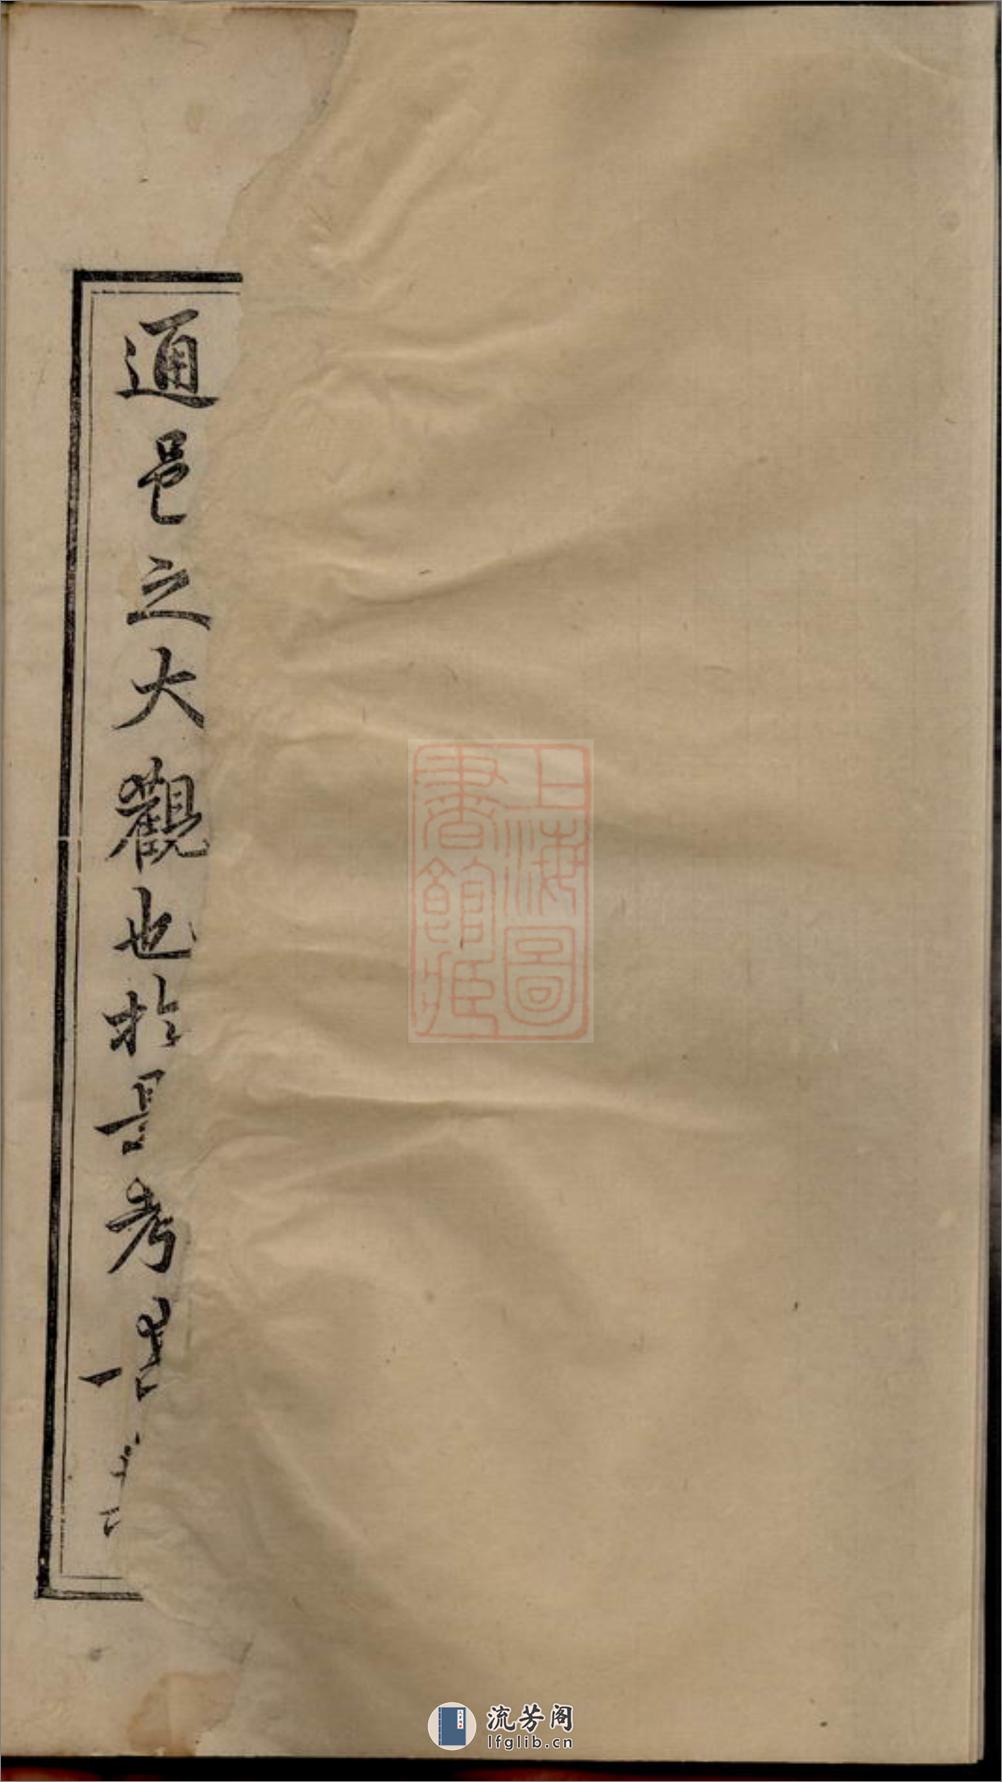 通邑之大觀也於是考
上海圖
書館藏
流芳阁
lfglib.cn